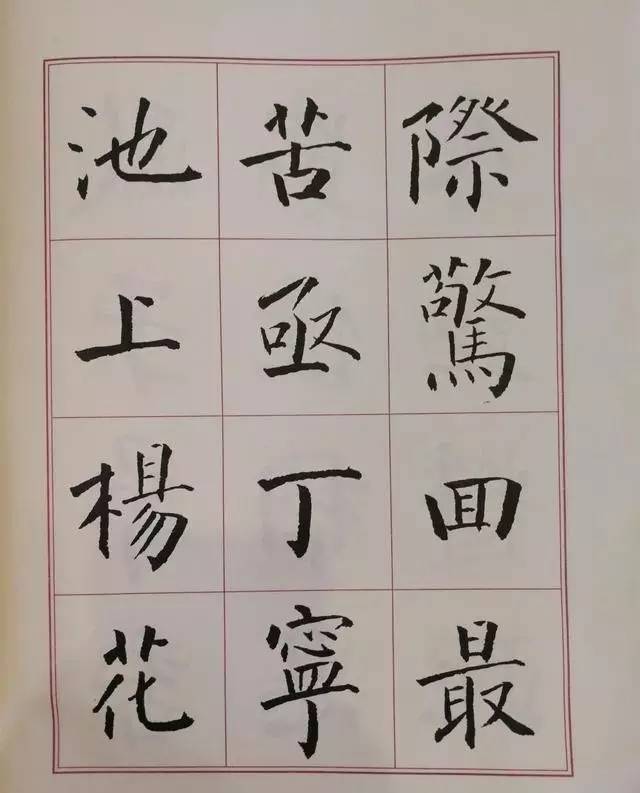 際驚回最
苦亟丁寧
池上楊花